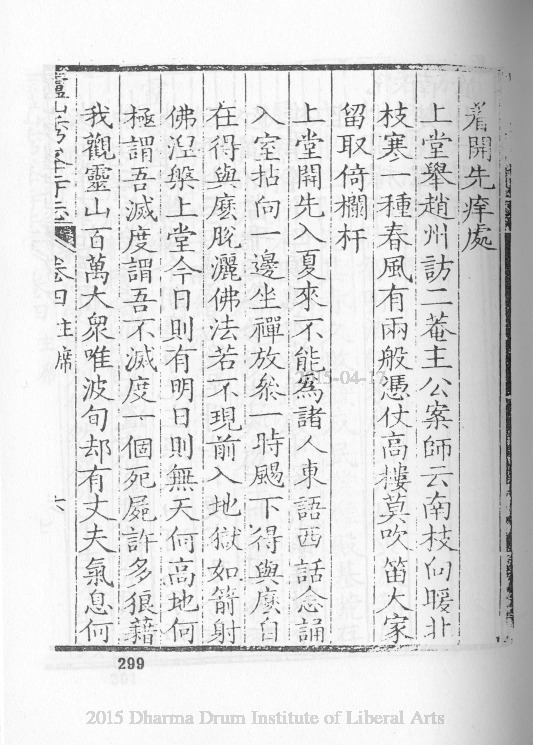 着開先痒處
上堂舉趙州訪二菴主公案師云南枝向暖北
枝寒一種春風有兩般憑仗高樓莫吹笛大家
留取倚欄杆
上堂開先入夏來不能爲諸人東語西話念誦
入室拈向一邊坐禪放叅一時颺下得與麼自
在得與麼脫灑佛法若不現前入地獄如箭射
佛涅槃上堂今日則有明日則無天何高地何
極謂吾滅度謂吾不滅度一個死屍許多狼藉
我觀靈山百萬大衆唯波旬却有丈夫氣息何
卷四 主席 六
299
2015-04-17
2015 Dharma Drum Institute of Liberal Arts